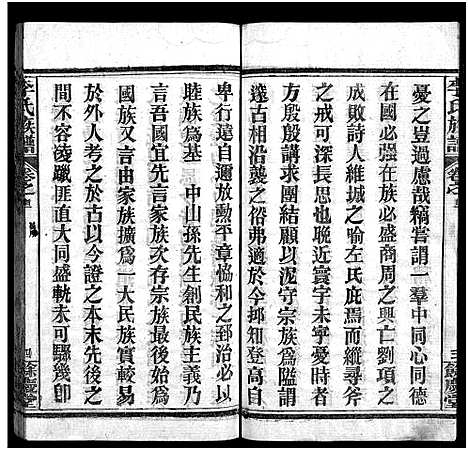 李氏族譜
卷之
三
餘慶堂
憂之豈過慮哉犒嘗謂一羣中同心同德
在國必强在族必盛商周之興亡劉項之
成敗詩人維城之喻左氏庇焉而縱尋斧
之戒可深長思也晚近寰宇未寧憂時者
方殷殷講求團結顧以泥守宗族爲隘謂
遠古相沿襲之俗弗適於今抑知登高自
卑行遠自邇放勳平章恊和之郅治以
睦族爲基 中山孫先生創民族主義乃
言吾國宜先言家族次存宗族最後始爲
國族又言由家族擴爲一大民族實較易
於外人考之於古以今證之本末先後之
間不容淩躐匪直大同盛軌未可驟幾卽
李氏族譜
卷之
四
餘慶堂